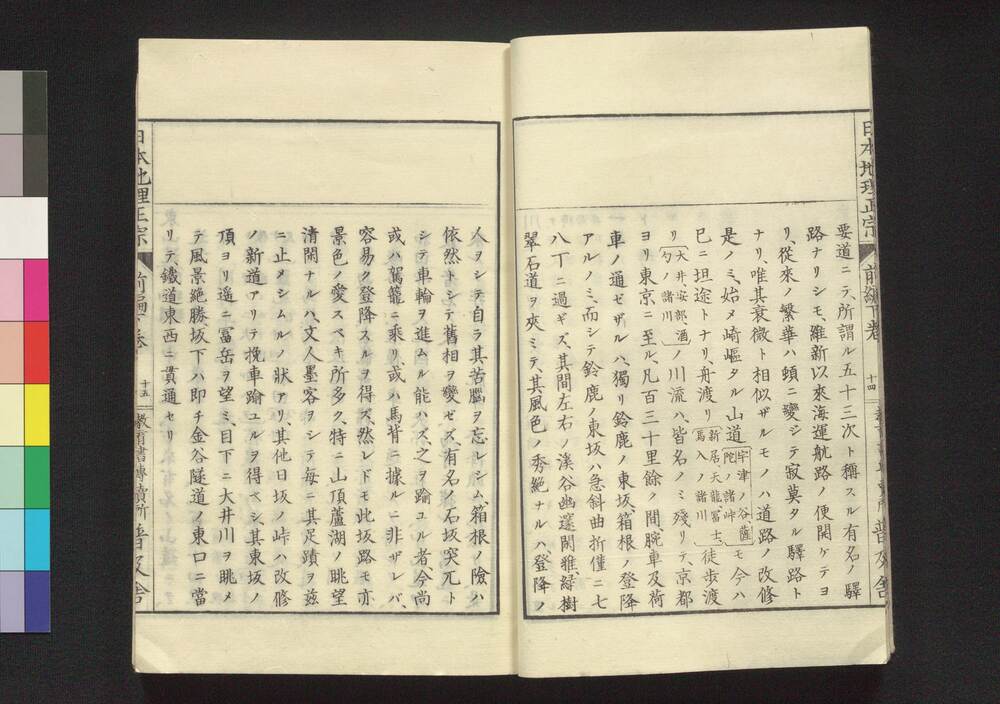 日本地理正宗
前編下巻
十四
普及舎
要道ニテ、所謂ル五十三次ト稱スル有名ノ驛
路ナリシモ、維新以來海運航路ノ便開ケテヨ
リ、從來ノ繁華ハ頓ニ變シテ寂莫タル驛路ト
ナリ、唯其衰微ト相似ザルモノハ道路ノ改修
是ノミ、始メ崎嶇タル山道(宇津ノ谷、薩陀ノ諸峠)モ今ハ
已ニ坦途トナリ、舟渡リ(新居、天龍、冨士、馬入ノ諸川)徒歩渡
リ(大井、安部、酒勾ノ諸川)ノ川流ハ、皆名ノミ殘リテ、京都
ヨリ東京ニ至ル、凡百三十里餘ノ間、腕車及荷
車ノ通ゼザルハ、獨リ鈴鹿ノ東坂、箱根ノ登降
アルノミ、而シテ鈴鹿ノ東坂ハ急斜曲折僅ニ七
八丁ニ過ギズ、其間左右ノ溪谷幽邃閑雅、緑樹
翠石道ヲ夾ミテ、其風色ノ秀絶ナルハ、登降ノ
人ヲシテ自ラ其苦𦡀ヲ忘レシム、箱根ノ險ハ
依然トシテ舊相ヲ變ゼズ、有名ノ石坂突兀ト
シテ車輪ヲ進ムル能ハズ、之ヲ踰ユル者、今尚
或ハ駕籠ニ乘リ、或ハ馬背ニ據ルニ非ザレバ、
容易ク登降スルヲ得ズ、然レドモ此坂路モ亦
景色ノ愛スベキ所多ク、特ニ山頂蘆湖ノ眺望
清閑ナルハ、文人墨客ヲシテ毎ニ其足蹟ヲ玆
ニ止メシムルノ狀アリ、其他日坂ノ峠ハ改修
ノ新道アリテ挽車踰ユルヲ得ベシ、其東坂ノ
頂ヨリ遥ニ冨岳ヲ望ミ、目下ニ大井川ヲ眺メ
テ風景絶勝、坂下ハ即チ金谷隧道ノ東口ニ當
リテ、鐵道東西ニ貫通セリ
日本地理正宗
前編下巻
十五
教育書專賣所
普及舎